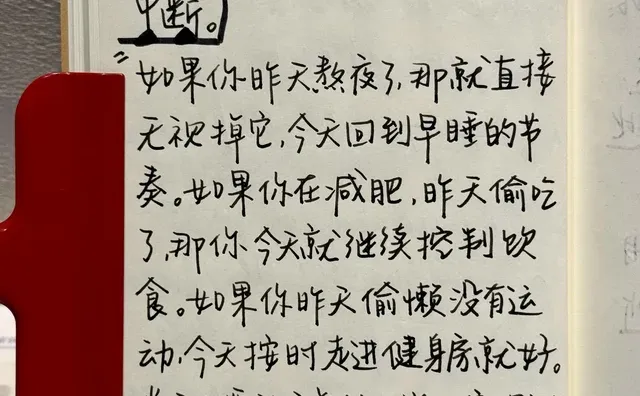 中断。
"如果你昨天熬夜了,那就直接
无视掉它,今天回到早睡的节
奏。如果你在减肥,昨天偷吃
了,那你今天就继续控制饮
食。如果你昨天偷懒没有运
动,今天按时走进健身房就好。